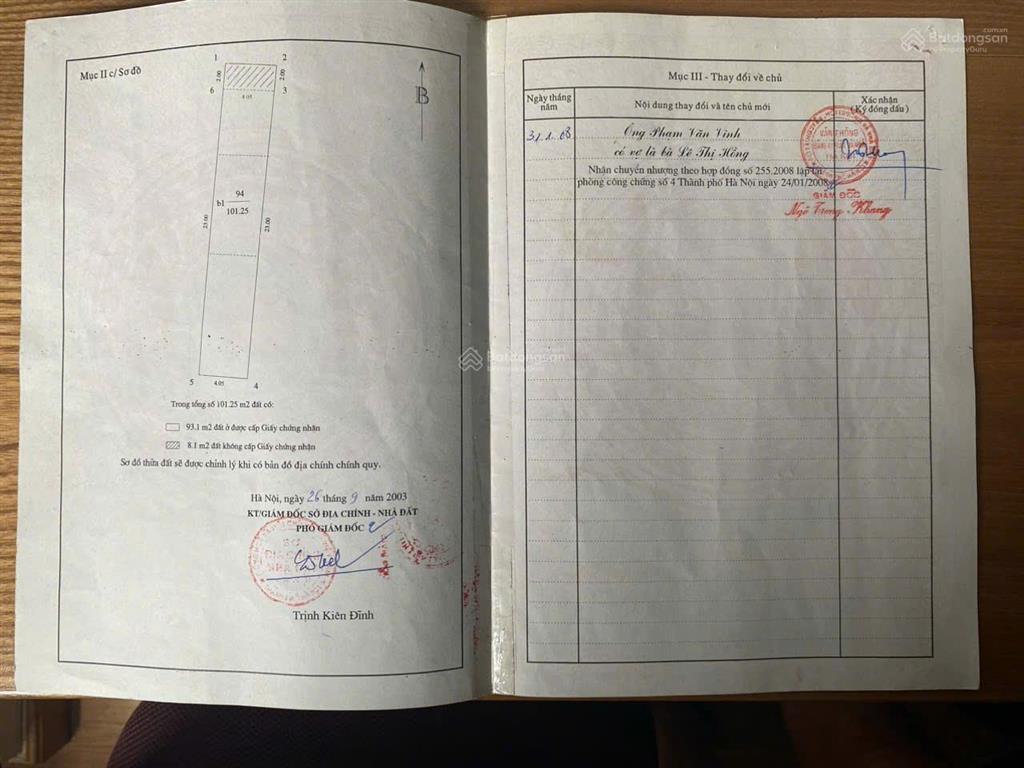 Mục II c/ Sơ đồ
1
2
2.00
2.00
6
4.05
3
B
94
b1
101.25
23.00
23.00
5
4.05
4
Trong tổng số 101.25 m2 đất có:
93.1 m2 đất ở được cấp Giấy chứng nhận
8.1 m2 đất không cấp Giấy chứng nhận
Sơ đồ thửa đất sẽ được chỉnh lý khi có bản đồ địa chính chính quy.
Hà Nội, ngày 26 tháng 9 năm 2003
KT/GIÁM ĐỐC SỞ ĐỊA CHÍNH - NHÀ ĐẤT
PHÓ GIÁM ĐỐC
Trịnh Kiên Đĩnh
Batdongsan
.com.vn
by PropertyGuru
Mục III - Thay đổi về chủ
Ngày tháng năm
Nội dung thay đổi và tên chủ mới
Xác nhận
(Ký đóng dấu)
31.1.08
Ông Phạm Văn Vinh
có vợ là bà Lê Thị Hồng
Nhận chuyển nhượng theo hợp đồng số 255.2008 lập tại
phòng công chứng số 4 Thành phố Hà Nội ngày 24/01/2008
VĂN PHÒNG
GIÁM ĐỐC
Ngô Trọng Khang
Batdongsan